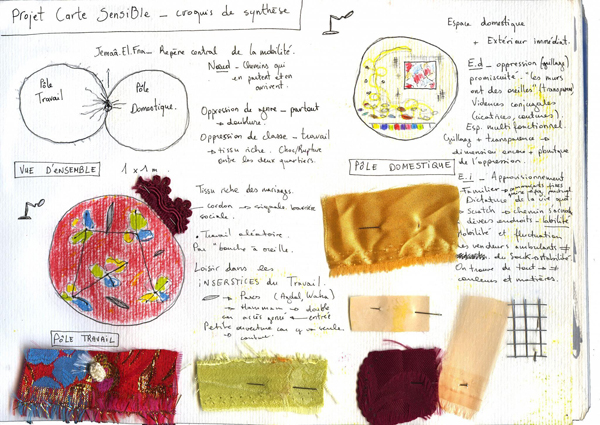 Projet Carte Sensible _ croquis de synthèse
Jemaâ.El.Fna _ Repère central de la mobilité.
Nœud _ Chemins qui
en partent et en
arrivent.
Pôle
Travail
Pôle
Domestique.
Oppression de genre _ partout
→ doublure
Oppression de classe _ travail
→ tissu riche. Choc/Rupture
entre les deux quartiers.
VUE D'ENSEMBLE
1 x 1 m
Tissu riche des mariages.
_ cordon → barrière
sociale.
• Travail aléatoire.
Par "bouche à oreille.
Loisir dans les
INSERSTICES du Travail.
→ Parcs (Aydal, Waha)
→ Hammam → double
car accès genré → entrée
Petite ouverture car y va seule.
PÔLE TRAVAIL
Espace domestique
+ Extérieur immédiat.
E.d → oppression (grillage)
promiscuité. "les murs
ont des oreilles" (transparence)
Violences conjugales
(cicatrices, coutures)
Esp. multifonctionnel.
Grillage + transparence →
dimension
de l'oppression.
PÔLE DOMESTIQUE
E.i _ Approvisionnement
familier →
Dictature de la vue que
→ Scratch → chemin
divers endroits
Mobilité et fluctuation
des vendeurs ambulants ≠
du Souk → stabilité
On trouve de tout → ≠
couleurs et matières.